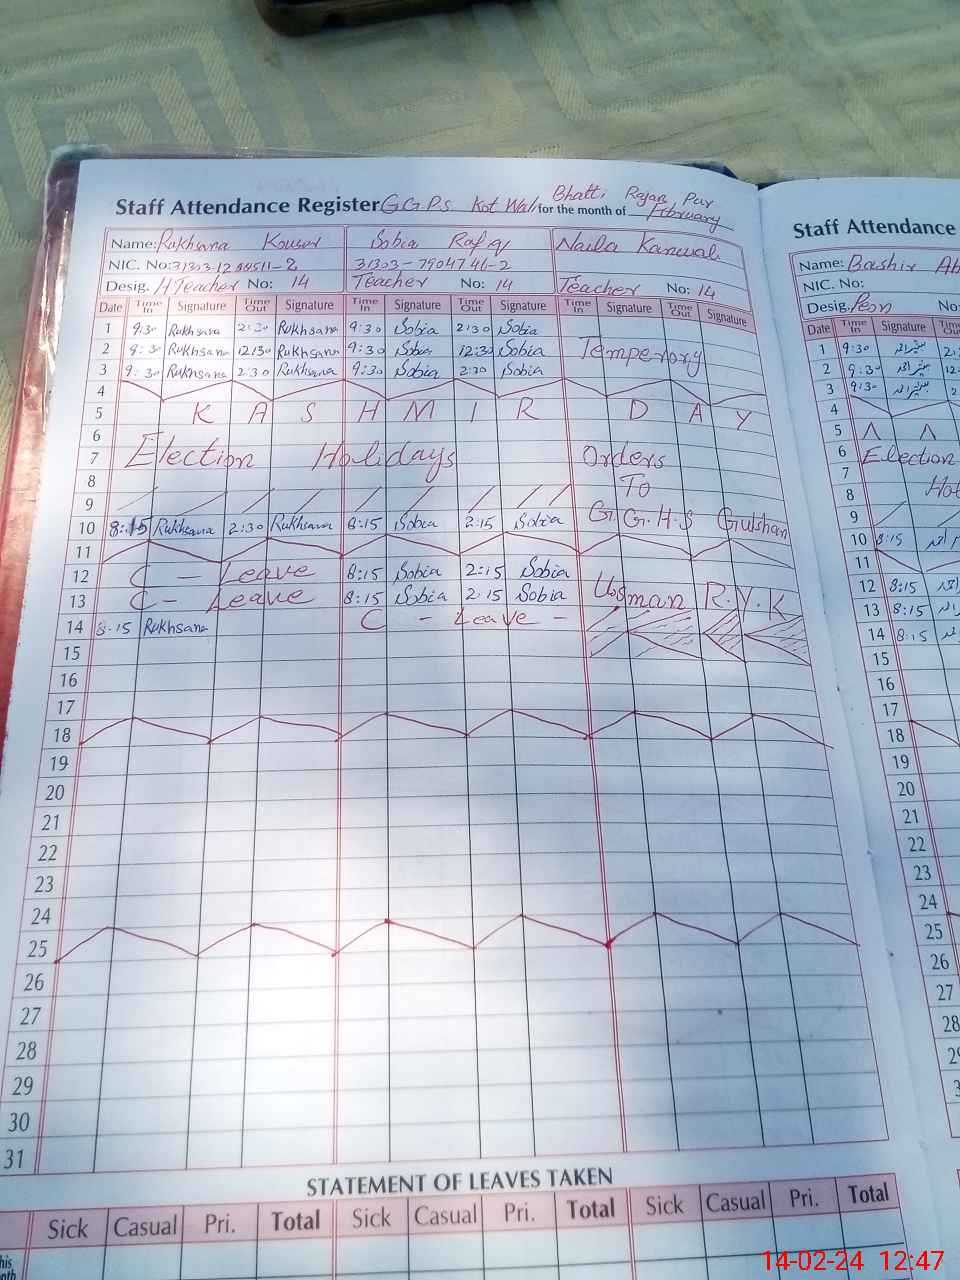 Staff Attendance Register G.G.P.S Kot Wal for the month of February
Bhatti Rajan Pur
Name: Rukhsana Kousar Sobia Rafiq Naila Kanwal
NIC. No: 31303-7904746-2
Desig. H Teacher No: 14 Teacher No: 14 Teacher No: 14
Date Time In Signature Time Out Signature Time In Signature Time Out Signature Time In Signature Time Out Signature
1 9:30 Rukhsana 2:30 Rukhsana 9:30 Sobia 2:30 Sobia
2 9:30 Rukhsana 12:30 Rukhsana 9:30 Sobia 12:30 Sobia Temperory
3 9:30 Rukhsana 2:30 Rukhsana 9:30 Sobia 2:30 Sobia
4
5 K A S H M I R D A Y
6
7 Election Holidays Orders
8 To
9
10 8:15 Rukhsana 2:30 Rukhsana 8:15 Sobia 2:15 Sobia G.G.H.S Gulshan
11
12 C - Leave 8:15 Sobia 2:15 Sobia
13 C - Leave 8:15 Sobia 2:15 Sobia Usman R.Y.K
14 8:15 Rukhsana C - Leave -
15
16
17
18
19
20
21
22
23
24
25
26
27
28
29
30
31
STATEMENT OF LEAVES TAKEN
Sick Casual Pri. Total Sick Casual Pri. Total Sick Casual Pri. Total
Staff Attendance
Name: Bashir
NIC. No:
Desig. Peon No:
Date Time In Signature Time Out
1 9:30
2 9:30
3 9:30
4
5
6 Election
7
8
9
10 8:15
11
12 8:15
13 8:15
14 8:15
15
16
17
18
19
20
21
22
23
24
25
26
27
28
14-02-24 12:47